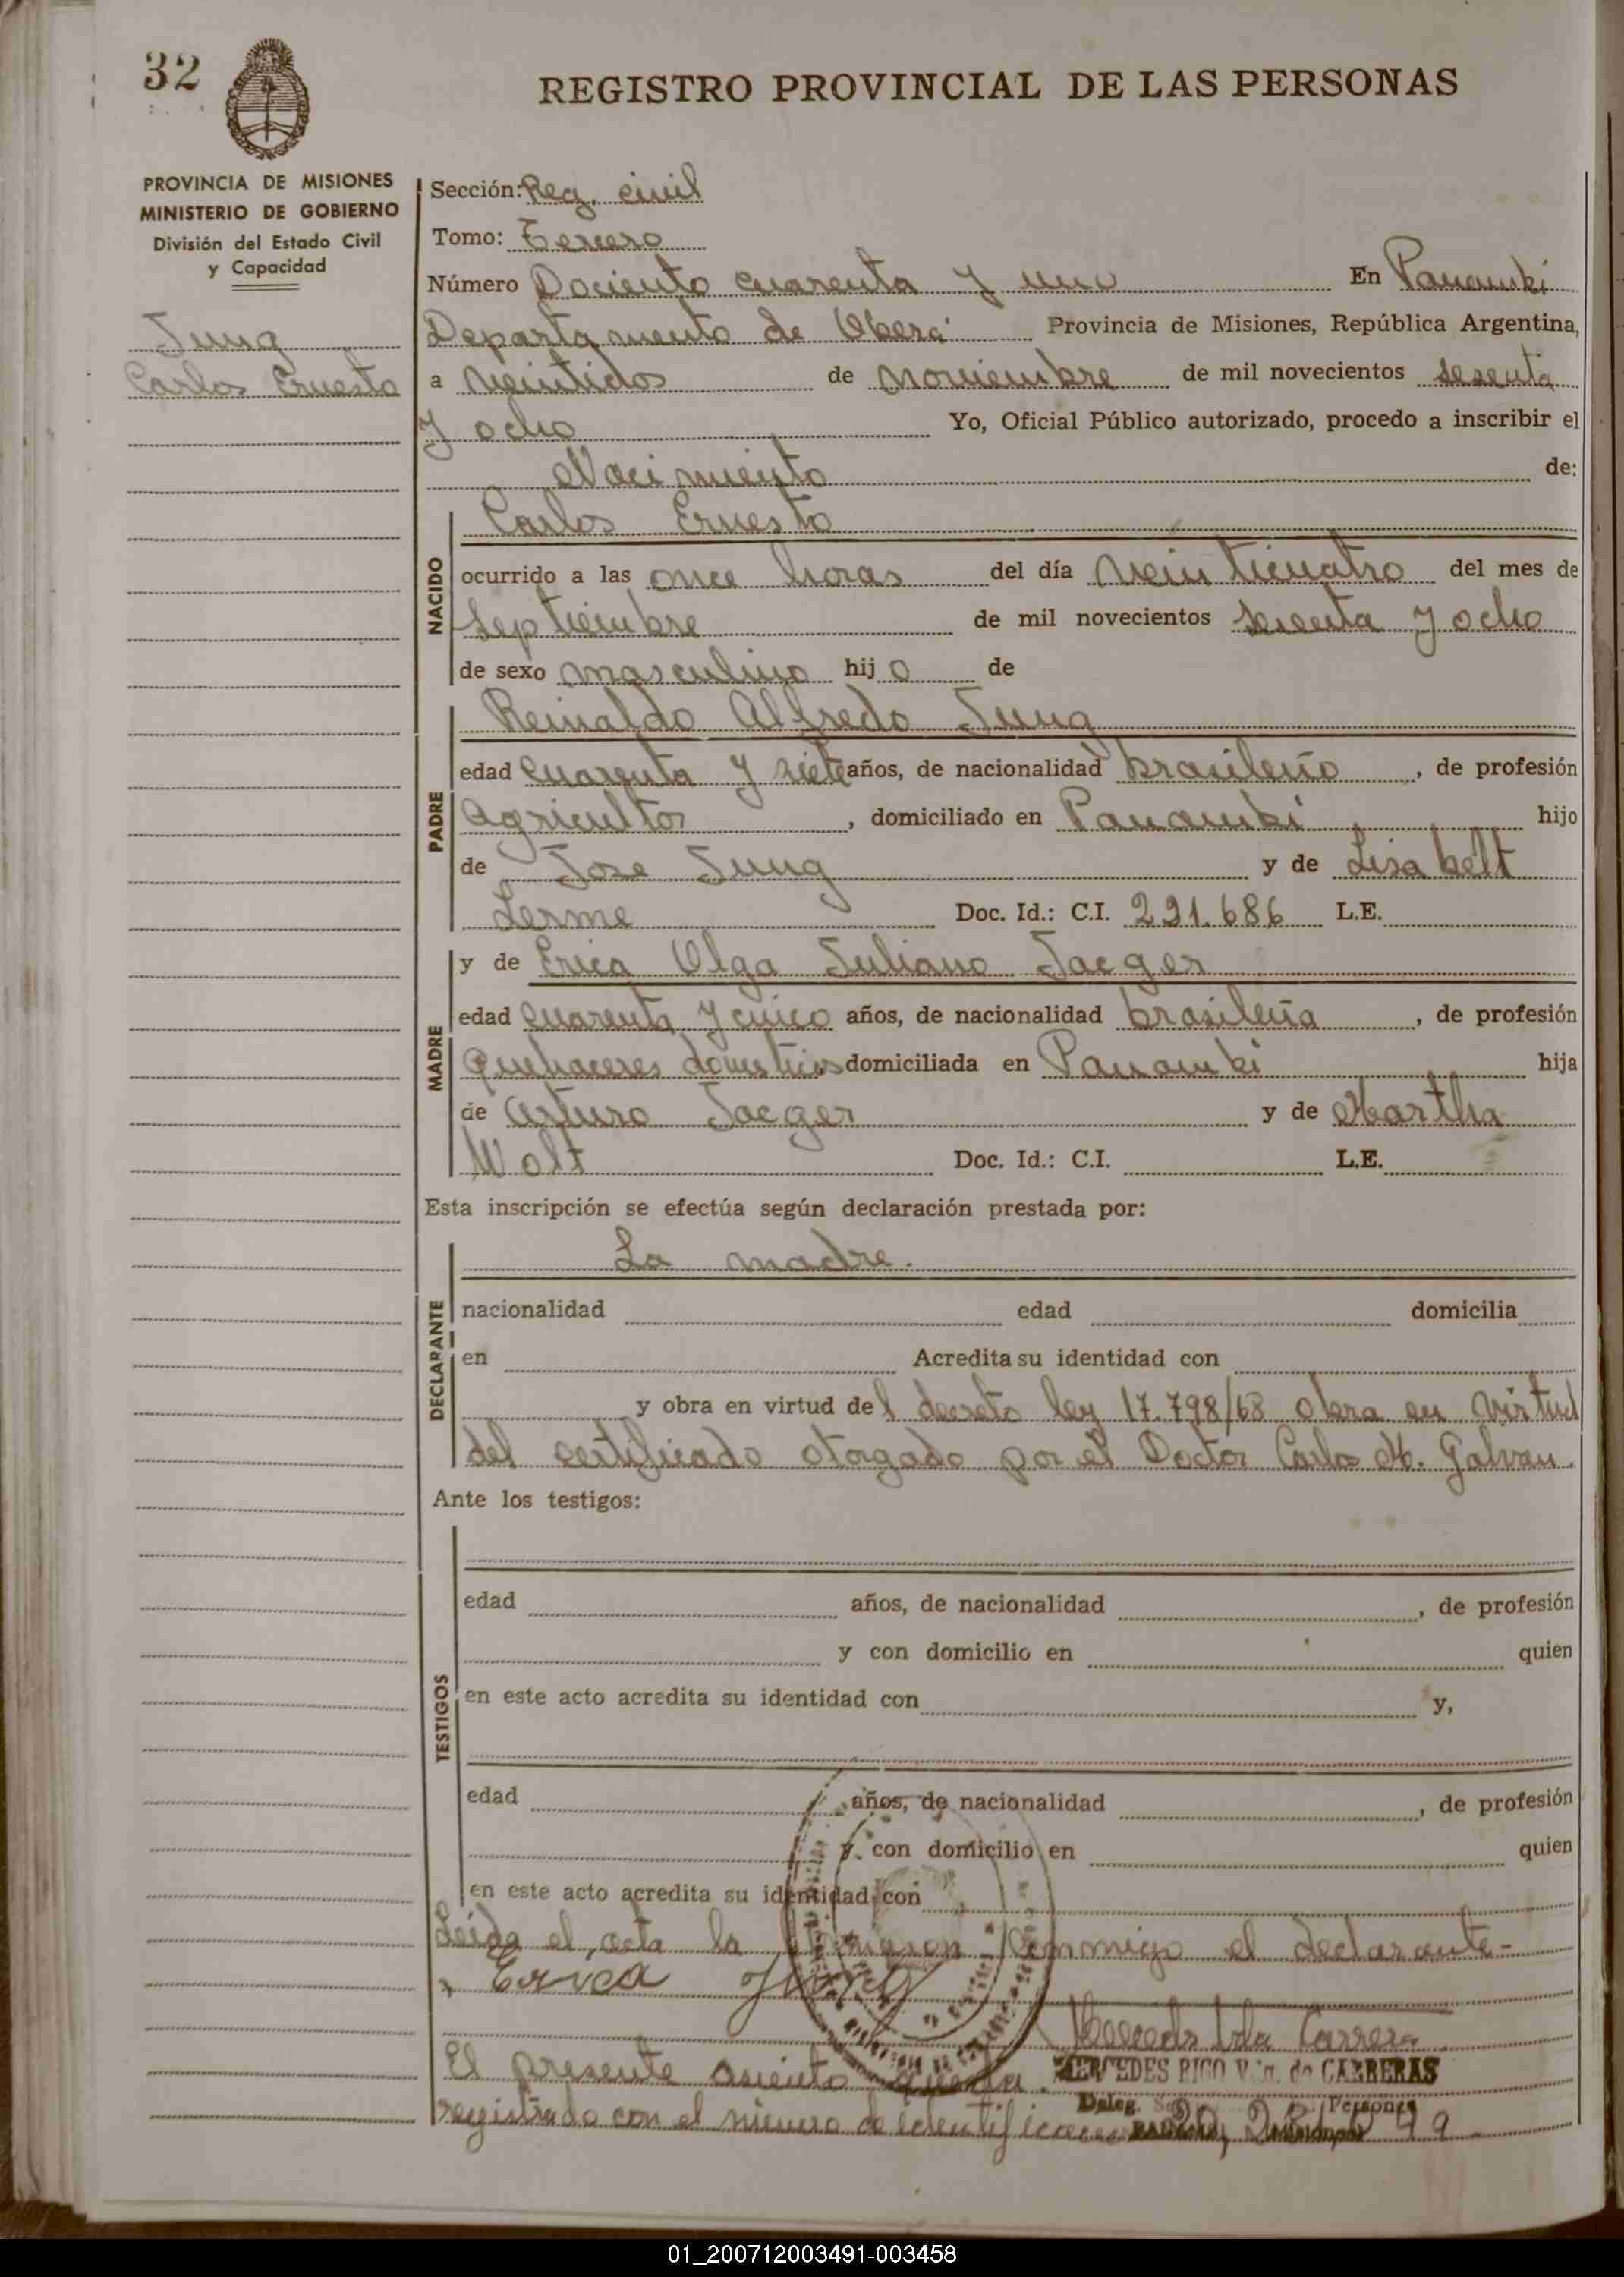 32
REGISTRO PROVINCIAL DE LAS PERSONAS
PROVINCIA DE MISIONES
MINISTERIO DE GOBIERNO
División del Estado Civil
y Capacidad
Jung
Carlos Ernesto
Sección: Reg. civil
Tomo: Tercero
Número Dociento cuarenta y uno En Panambi
Departamento de Oberá Provincia de Misiones, República Argentina,
a veintidos de noviembre de mil novecientos sesenta
y ocho Yo, Oficial Público autorizado, procedo a inscribir el
Nacimiento de:
NACIDO
Carlos Ernesto
ocurrido a las once horas del día veinticuatro del mes de
septiembre de mil novecientos sesenta y ocho
de sexo masculino hijo de
PADRE
Reinaldo Alfredo Jung
edad cuarenta y siete años, de nacionalidad brasileño, de profesión
agricultor, domiciliado en Panambi hijo
de Jose Jung y de Lisabelt
Lerme Doc. Id.: C.I. 221.686 L.E.
MADRE
y de Erica Olga Juliana Jaeger
edad cuarenta y cinco años, de nacionalidad brasileña, de profesión
quehaceres domesticos domiciliada en Panambi hija
de Arturo Jaeger y de Martha
Wolt Doc. Id.: C.I. L.E.
Esta inscripción se efectúa según declaración prestada por:
DECLARANTE
La madre.
nacionalidad edad domicilia
en Acredita su identidad con
y obra en virtud del decreto ley 17.798/68 obra en virtud
del certificado otorgado por el Doctor Carlos H. Galvan.
Ante los testigos:
TESTIGOS
edad años, de nacionalidad , de profesión
y con domicilio en quien
en este acto acredita su identidad con y,
edad años, de nacionalidad , de profesión
y con domicilio en quien
en este acto acredita su identidad con
Leída el acta la firmaron conmigo el declarante-
Erica Jung
Mercedes Carrera
El presente asiento queda MERCEDES PICO Vda. de CARRERAS
registrado con el número de identificacion
Deleg. Personas
01_200712003491-003458